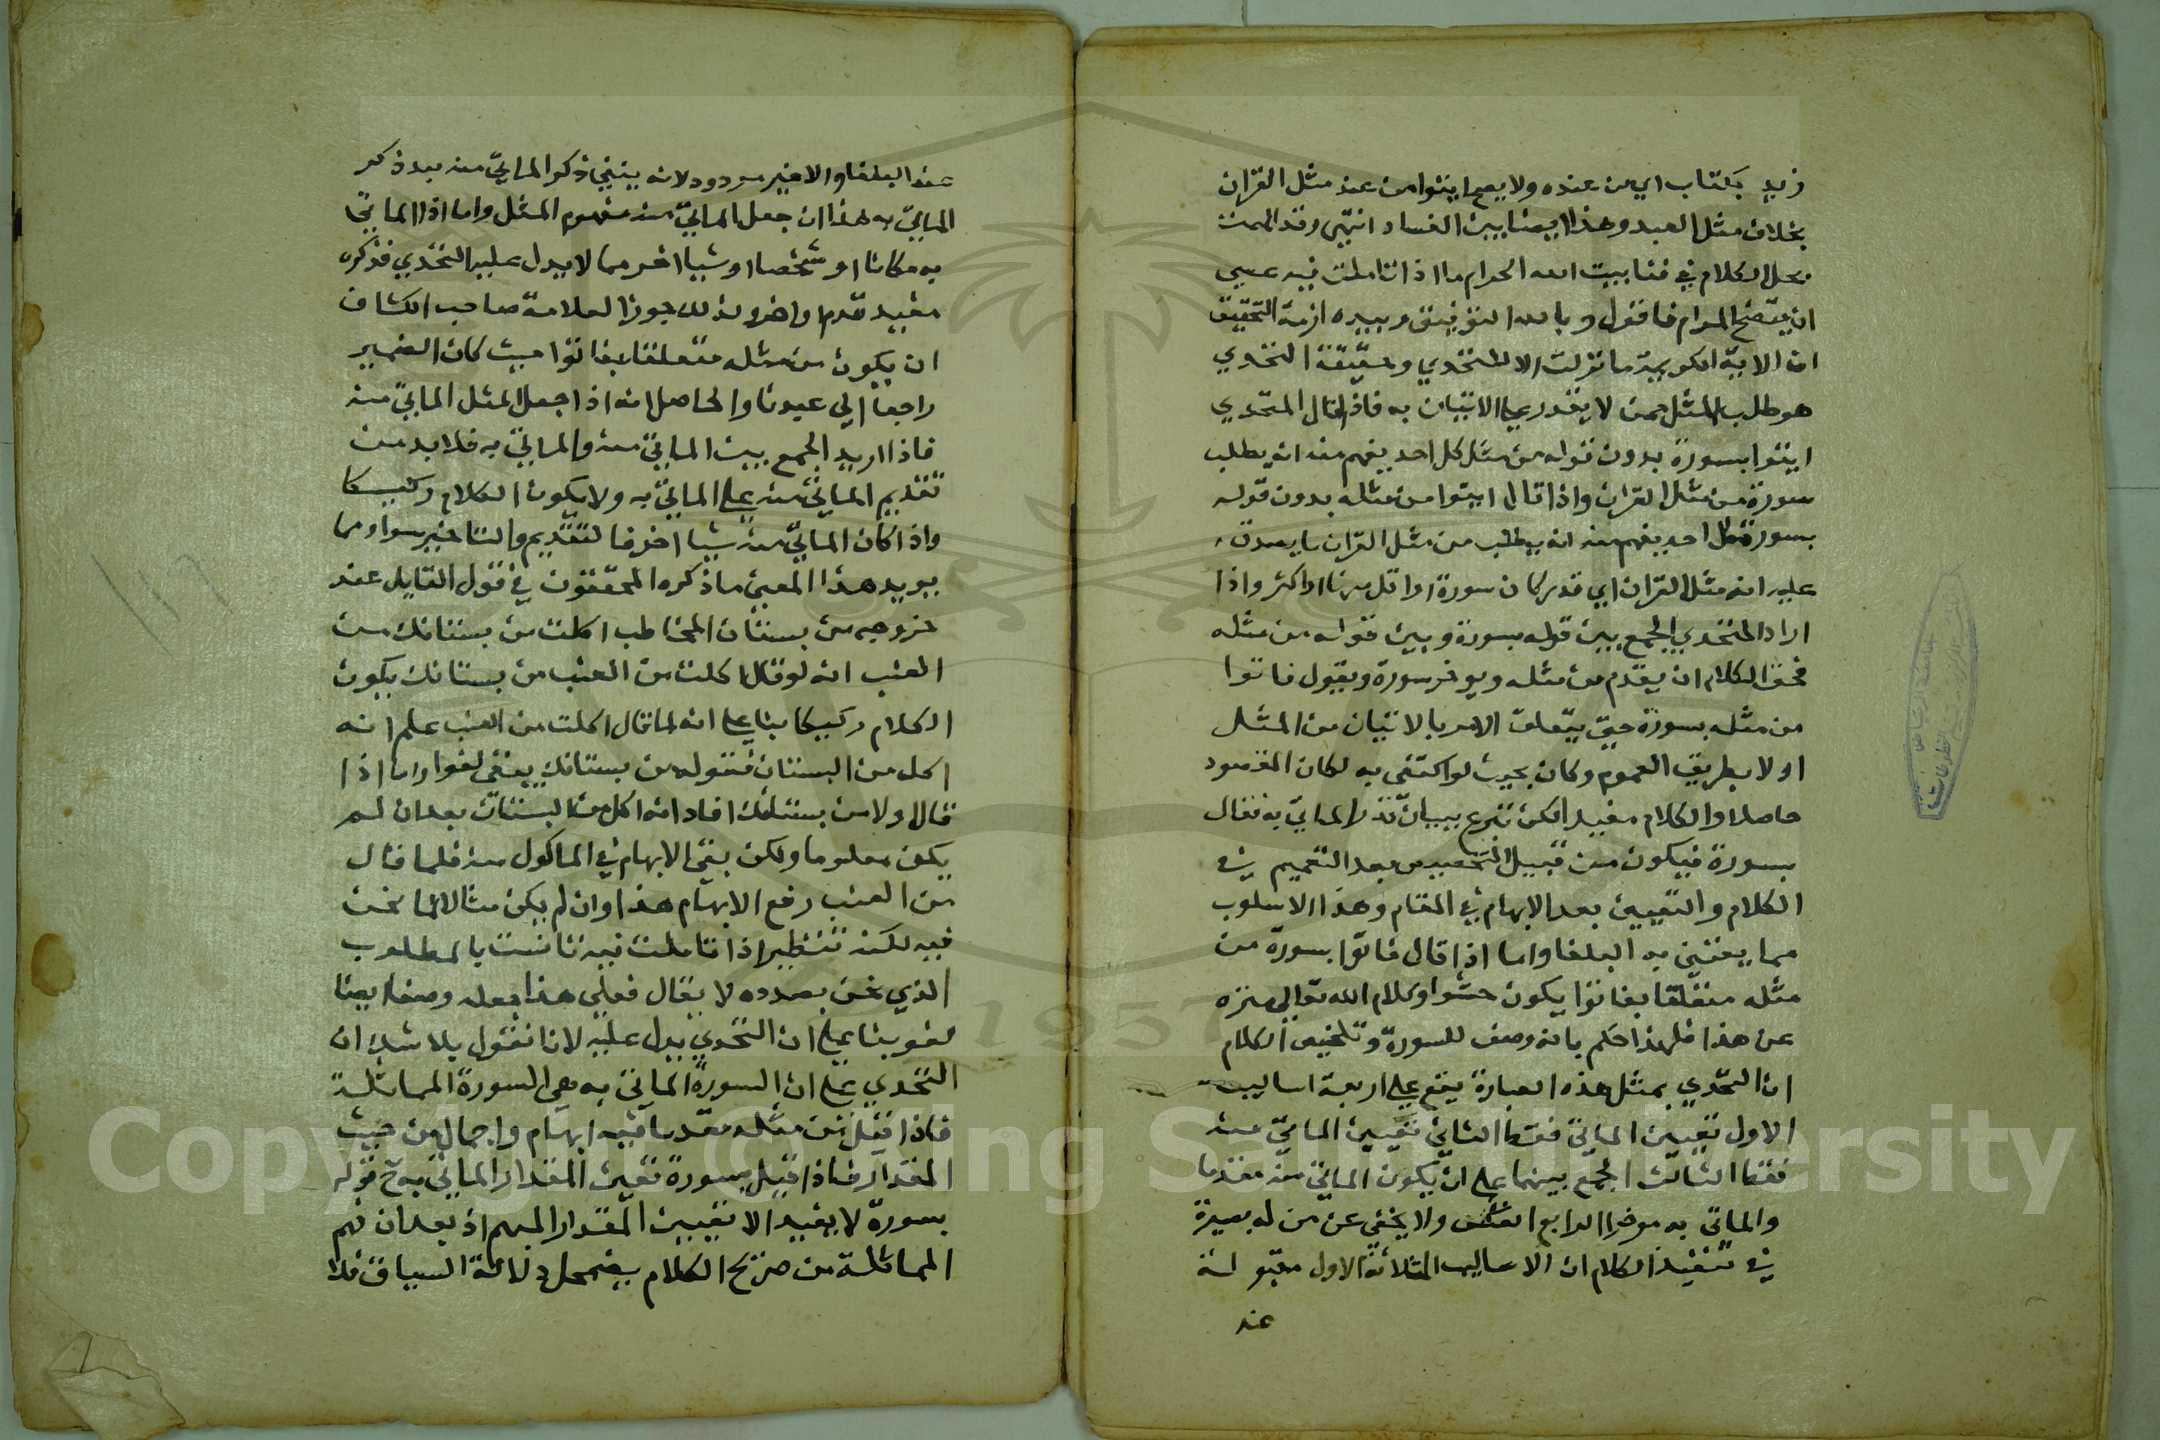 زيد بكتاب اي من عنده ولا يصح ايتوا من عند مثل القران
بخلاف مثل العبد وهذا ايضا بين الفساد انتهى وقد الهمت
بحل الكلام في فنا بيت الله الحرام ما اذا تاملت فيه عسى
ان يتضح المرام فاقول وبالله التوفيق وبيده ازمة التحقيق
ان الاية الكريمة ما نزلت الا للتحدي وحقيقة التحدي
هو طلب المثل ممن لا يقدر على الاتيان به فاذا قال المتحدي
ايتوا بسورة بدون قوله من مثل كل احد يفهم منه انه يطلب
سورة من مثل القران واذا قال ايتوا من مثله بدون قوله
بسورة كل احد يفهم منه انه يطلب من مثل القران ما يصدق
عليه انه مثل القران اي قدر كان سورة او اقل منها او اكثر واذا
اراد المتحدي الجمع بين قوله بسورة وبين قوله من مثله
فحق الكلام ان يقدم من مثله ويوخر سورة ويقول فاتوا
من مثله بسورة حتى يتعلق الامر بالاتيان من المثل
اولا بطريق العموم وكان بحيث لو اكتفى به لكان المقصود
حاصلا والكلام مفيدا لكن تبرع ببيان قدر الماتي به فقال
بسورة فيكون من قبيل التخصيص بعد التعميم في
الكلام والتعيين بعد الابهام في المقام وهذا الاسلوب
مما يعتني به البلغا واما اذا قال فاتوا بسورة من
مثله متعلقا بفاتوا يكون حشوا وكلام الله تعالى منزه
عن هذا فلهذا حكم بانه وصف للسورة وتلخيص الكلام
ان التحدي بمثل هذه العبارة يقع على اربعة اساليب
الاول تعيين الماتي فقط الثاني تعيين الماتي منه
فقط الثالث الجمع بينهما على ان يكون الماتي منه مقدما
والماتي به موخرا الرابع العكس ولا يخفى عن من له بصيرة
في تنقيد الكلام ان الاساليب الثلاثة الاول مقبولة
عند
عند البلغا والاخير مردود لانه يبقى ذكر الماتي منه بعد ذكر
الماتي به هذا ان جعل الماتي منه مفهوم المثل واما اذا الماتي
به مكانا او شخصا او شيا اخر مما لا يدل عليه التحدي فذكره
مفيد قدم او اخر ولذلك جوز العلامة صاحب الكشاف
ان يكون من مثله متعلقا بفاتوا حيث كان الضمير
راجعا الى عبدنا والحاصل انه اذا جعل المثل الماتي منه
فاذا اريد الجمع بين الماتي منه والماتي به فلا بد من
تقديم الماتي منه على الماتي به ولا يكون الكلام ركيكا
واذا كان الماتي منه شيا اخر فالتقديم والتاخير سوا ومما
يويد هذا المعنى ما ذكره المحققون في قول القايل عند
خروجه من بستان المخاطب اكلت من بستانك من
العنب انه لو قال اكلت من العنب من بستانك يكون
الكلام ركيكا بنا على انه لما قال اكلت من العنب علم انه
اكل من البستان فقوله من بستانك يبقى لغوا واما اذا
قال اولا من بستانك افاد انه اكل من البستان بعد ان لم
يكن معلوما ولكن بقي الابهام في الماكول منه فلما قال
من العنب رفع الابهام هذا وان لم يكن مثالا لما نحن
فيه لكنه تنظير اذا تاملت فيه تانست بالمطلوب
الذي نحن بصدده لا يقال فعلى هذا جعله وصفا ايضا
لغو بنا على ان التحدي يدل عليه لانا نقول بلا شك ان
التحدي على ان السورة الماتي به هي السورة المماثلة
فاذا قيل من مثله مقدما فيه ابهام واجمال من حيث
المقدار فاذا قيل بسورة تعين المقدار الماتي به ح قوله
بسورة لا يفيد الا تعيين المقدار المبهم اذ بعد ان فهم
المماثلة من صريح الكلام يضمحل دلالة السياق فلا